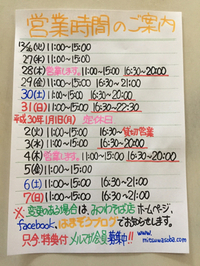 営業時間のご案内
12/26(火) 11:00~15:00
27(水) 11:00~15:00
28(木) 営業します。11:00~15:00 16:30~20:00
29(金) 11:00~15:00 16:30~21:00
30(土) 11:00~15:00 16:30~20:00
31(日) 11:00~15:00 16:30~22:30
平成30年1月1日(月) 定休日
2(火) 11:00~15:00 貸切営業
3(水) 11:00~15:00 16:30~20:00
4(木) 営業します。11:00~15:00 16:30~20:00
5(金) 11:00~15:00
6(土) 11:00~15:00 16:30~21:00
7(日) 11:00~15:00 16:30~21:00
※変更のある場合は、みつわそば店ホームページ、
facebook、はまぞうブログでお知らせします。
只今、特典付メルマガ会員募集中!! www.
mitsuwasoba.com